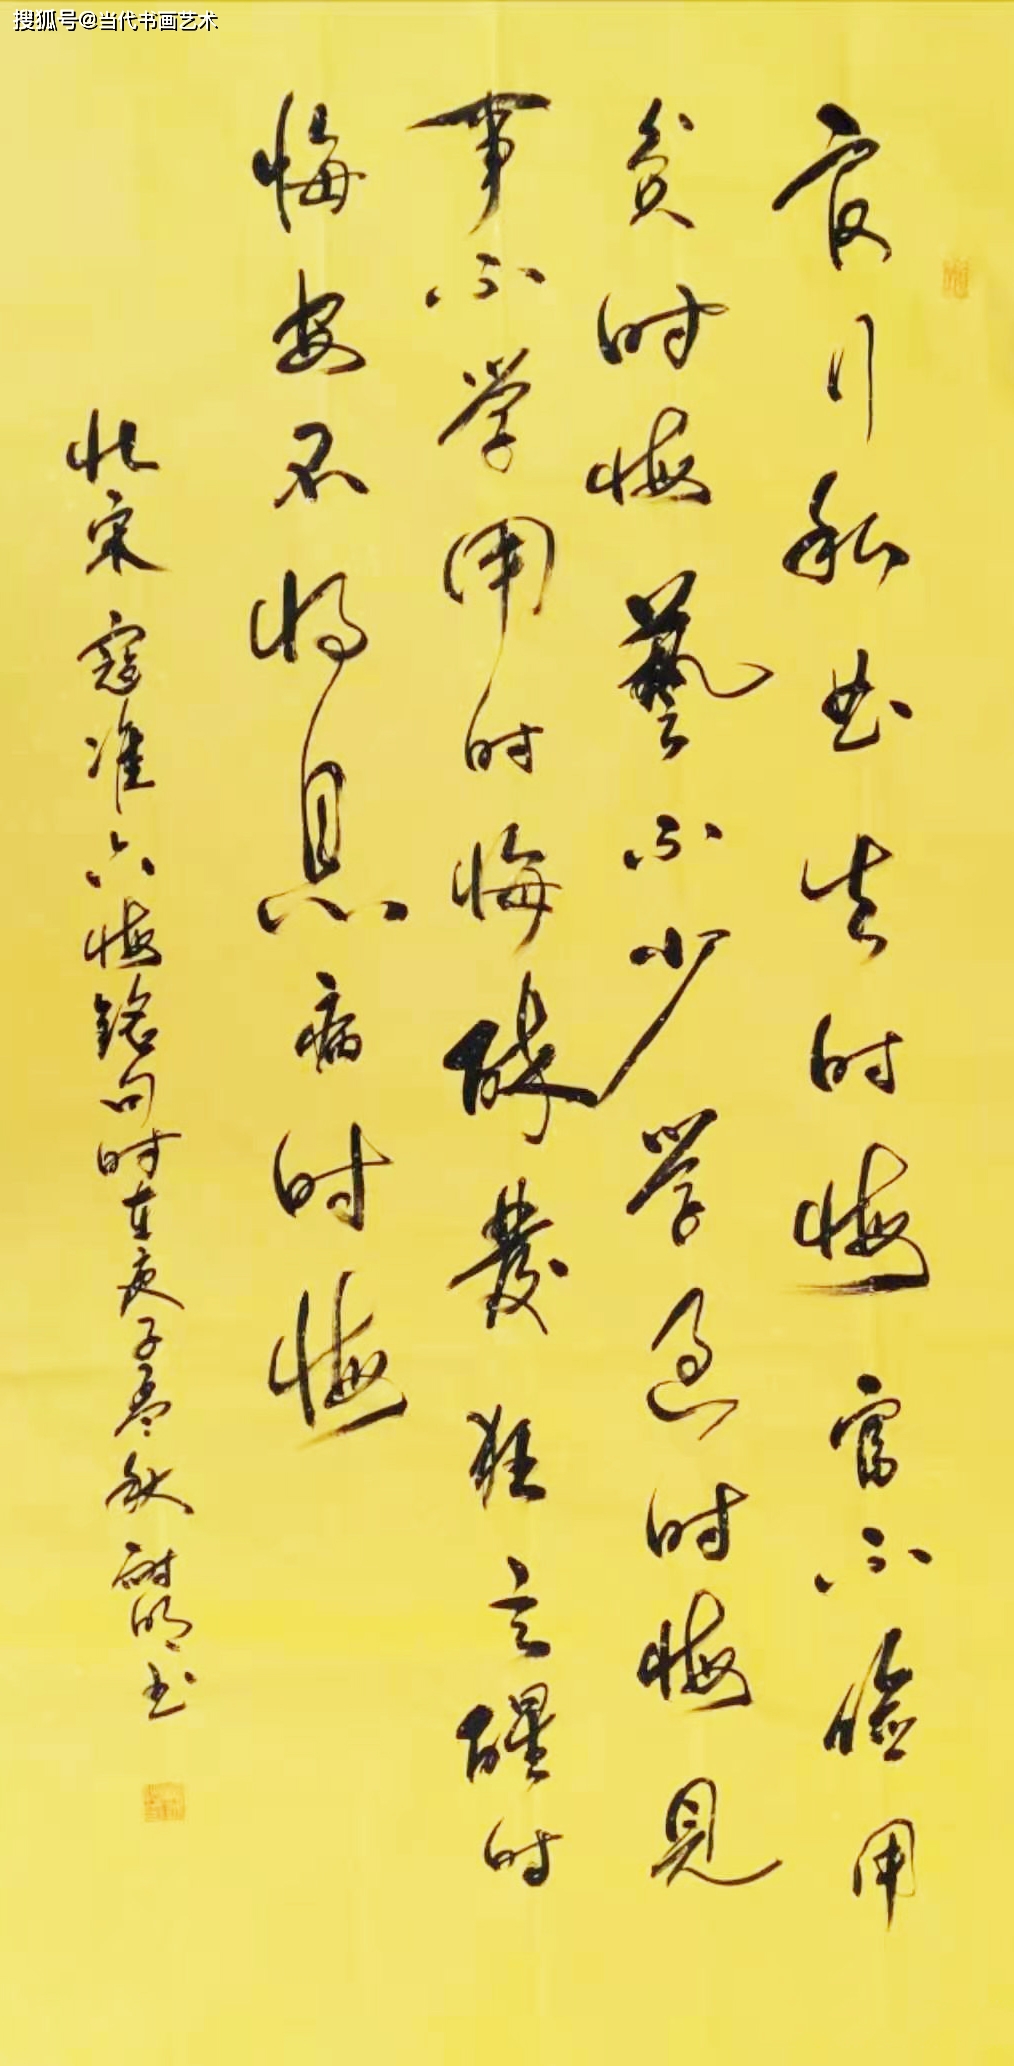 搜狐号@当代书画艺术
官行私曲失时悔富不俭用
贫时悔藝不少学过时悔见
事不学用时悔醉發狂言醒时
悔安不将息病时悔
北宋寇准六悔銘句时在庚子秋明书